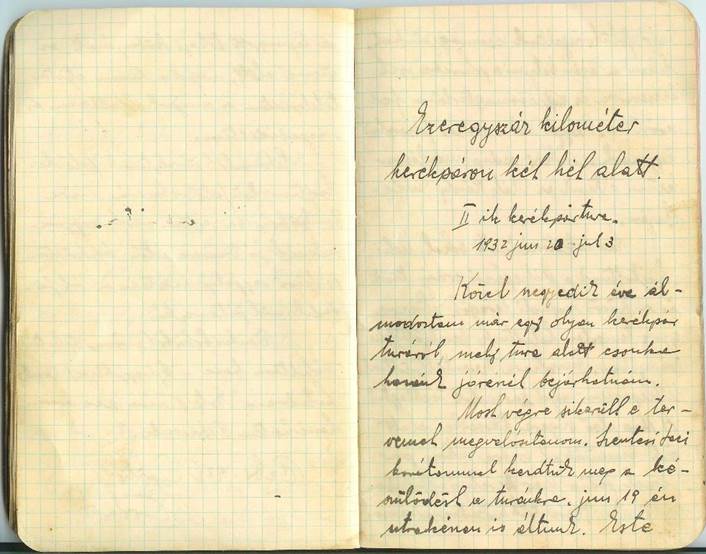 Ezeregyszáz kilométer
kerékpáron két hét alatt.
II ik kerékpártura.
1932 jun 20 - jul 3
Közel negyedik éve ál-
modoztam már egy olyan kerékpár
turáról, mely tura alatt csonka
hazánk jórénél bejárhatnám.
Most végre sikerült e ter-
vemet megvalósítanom. Szentesi Laci
barátommal kezdtük meg a ké-
szülődést a turánkra. jun 19 én
utrakészen is álltunk. Este